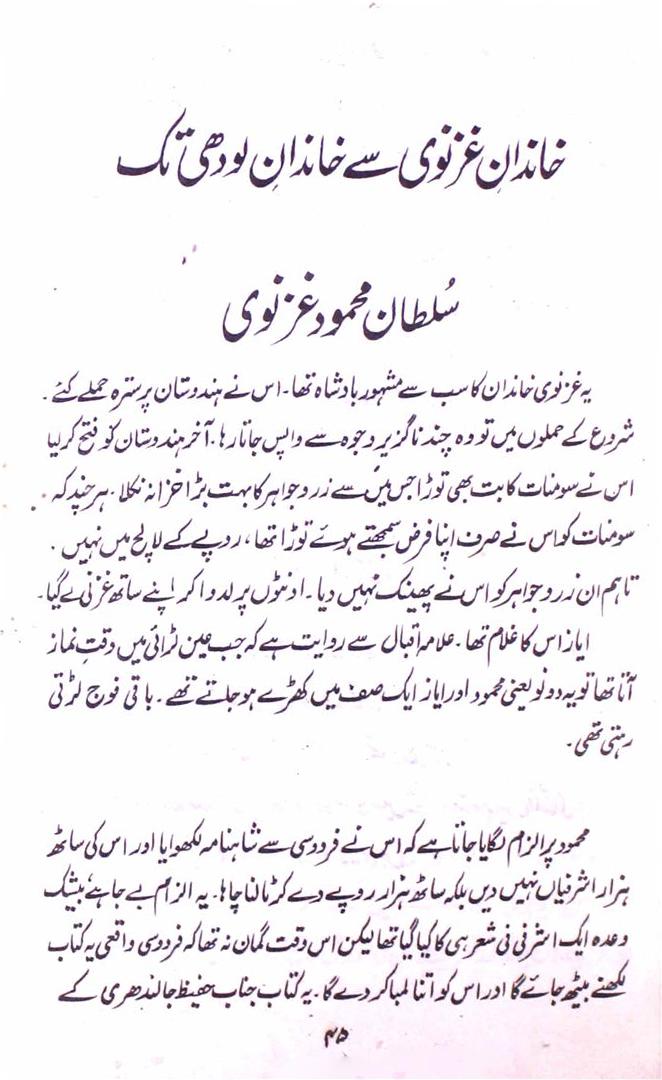 خاندانِ غزنوی سے خاندانِ لودھی تک
سُلطان محمود غزنوی
یہ غزنوی خاندان کا سب سے مشہور بادشاہ تھا۔ اس نے ہندوستان پر سترہ حملے کئے۔
شروع کے حملوں میں تو وہ چند ناگزیر وجوہ سے واپس جاتا رہا۔ آخر ہندوستان کو فتح کر لیا
اس نے سومنات کا بت بھی توڑا جس میں سے زر و جواہر کا بہت بڑا خزانہ نکلا۔ ہر چند کہ
سومنات کو اس نے صرف اپنا فرض سمجھتے ہوئے توڑا تھا، روپے کے لالچ میں نہیں۔
تاہم ان زر و جواہر کو اس نے پھینک نہیں دیا۔ اونٹوں پر لدوا کر اپنے ساتھ غزنی لے گیا۔
ایاز اس کا غلام تھا۔ علامہ اقبال سے روایت ہے کہ جب عین لڑائی میں وقتِ نماز
آتا تھا تو یہ دونو یعنی محمود اور ایاز ایک صف میں کھڑے ہو جاتے تھے۔ باقی فوج لڑتی
رہتی تھی۔
محمود پر الزام لگایا جاتا ہے کہ اس نے فردوسی سے شاہنامہ لکھوایا اور اس کی ساٹھ
ہزار اشرفیاں نہیں دیں بلکہ ساٹھ ہزار روپے دے کر ٹالنا چاہا۔ یہ الزام بے جا ہے بیشک
وعدہ ایک اشرفی فی شعر ہی کا کیا گیا تھا لیکن اس وقت گمان نہ تھا کہ فردوسی واقعی یہ کتاب
لکھنے بیٹھ جائے گا اور اس کو اتنا لمبا کر دے گا۔ یہ کتاب جناب حفیظ جالندھری کے
۴۵